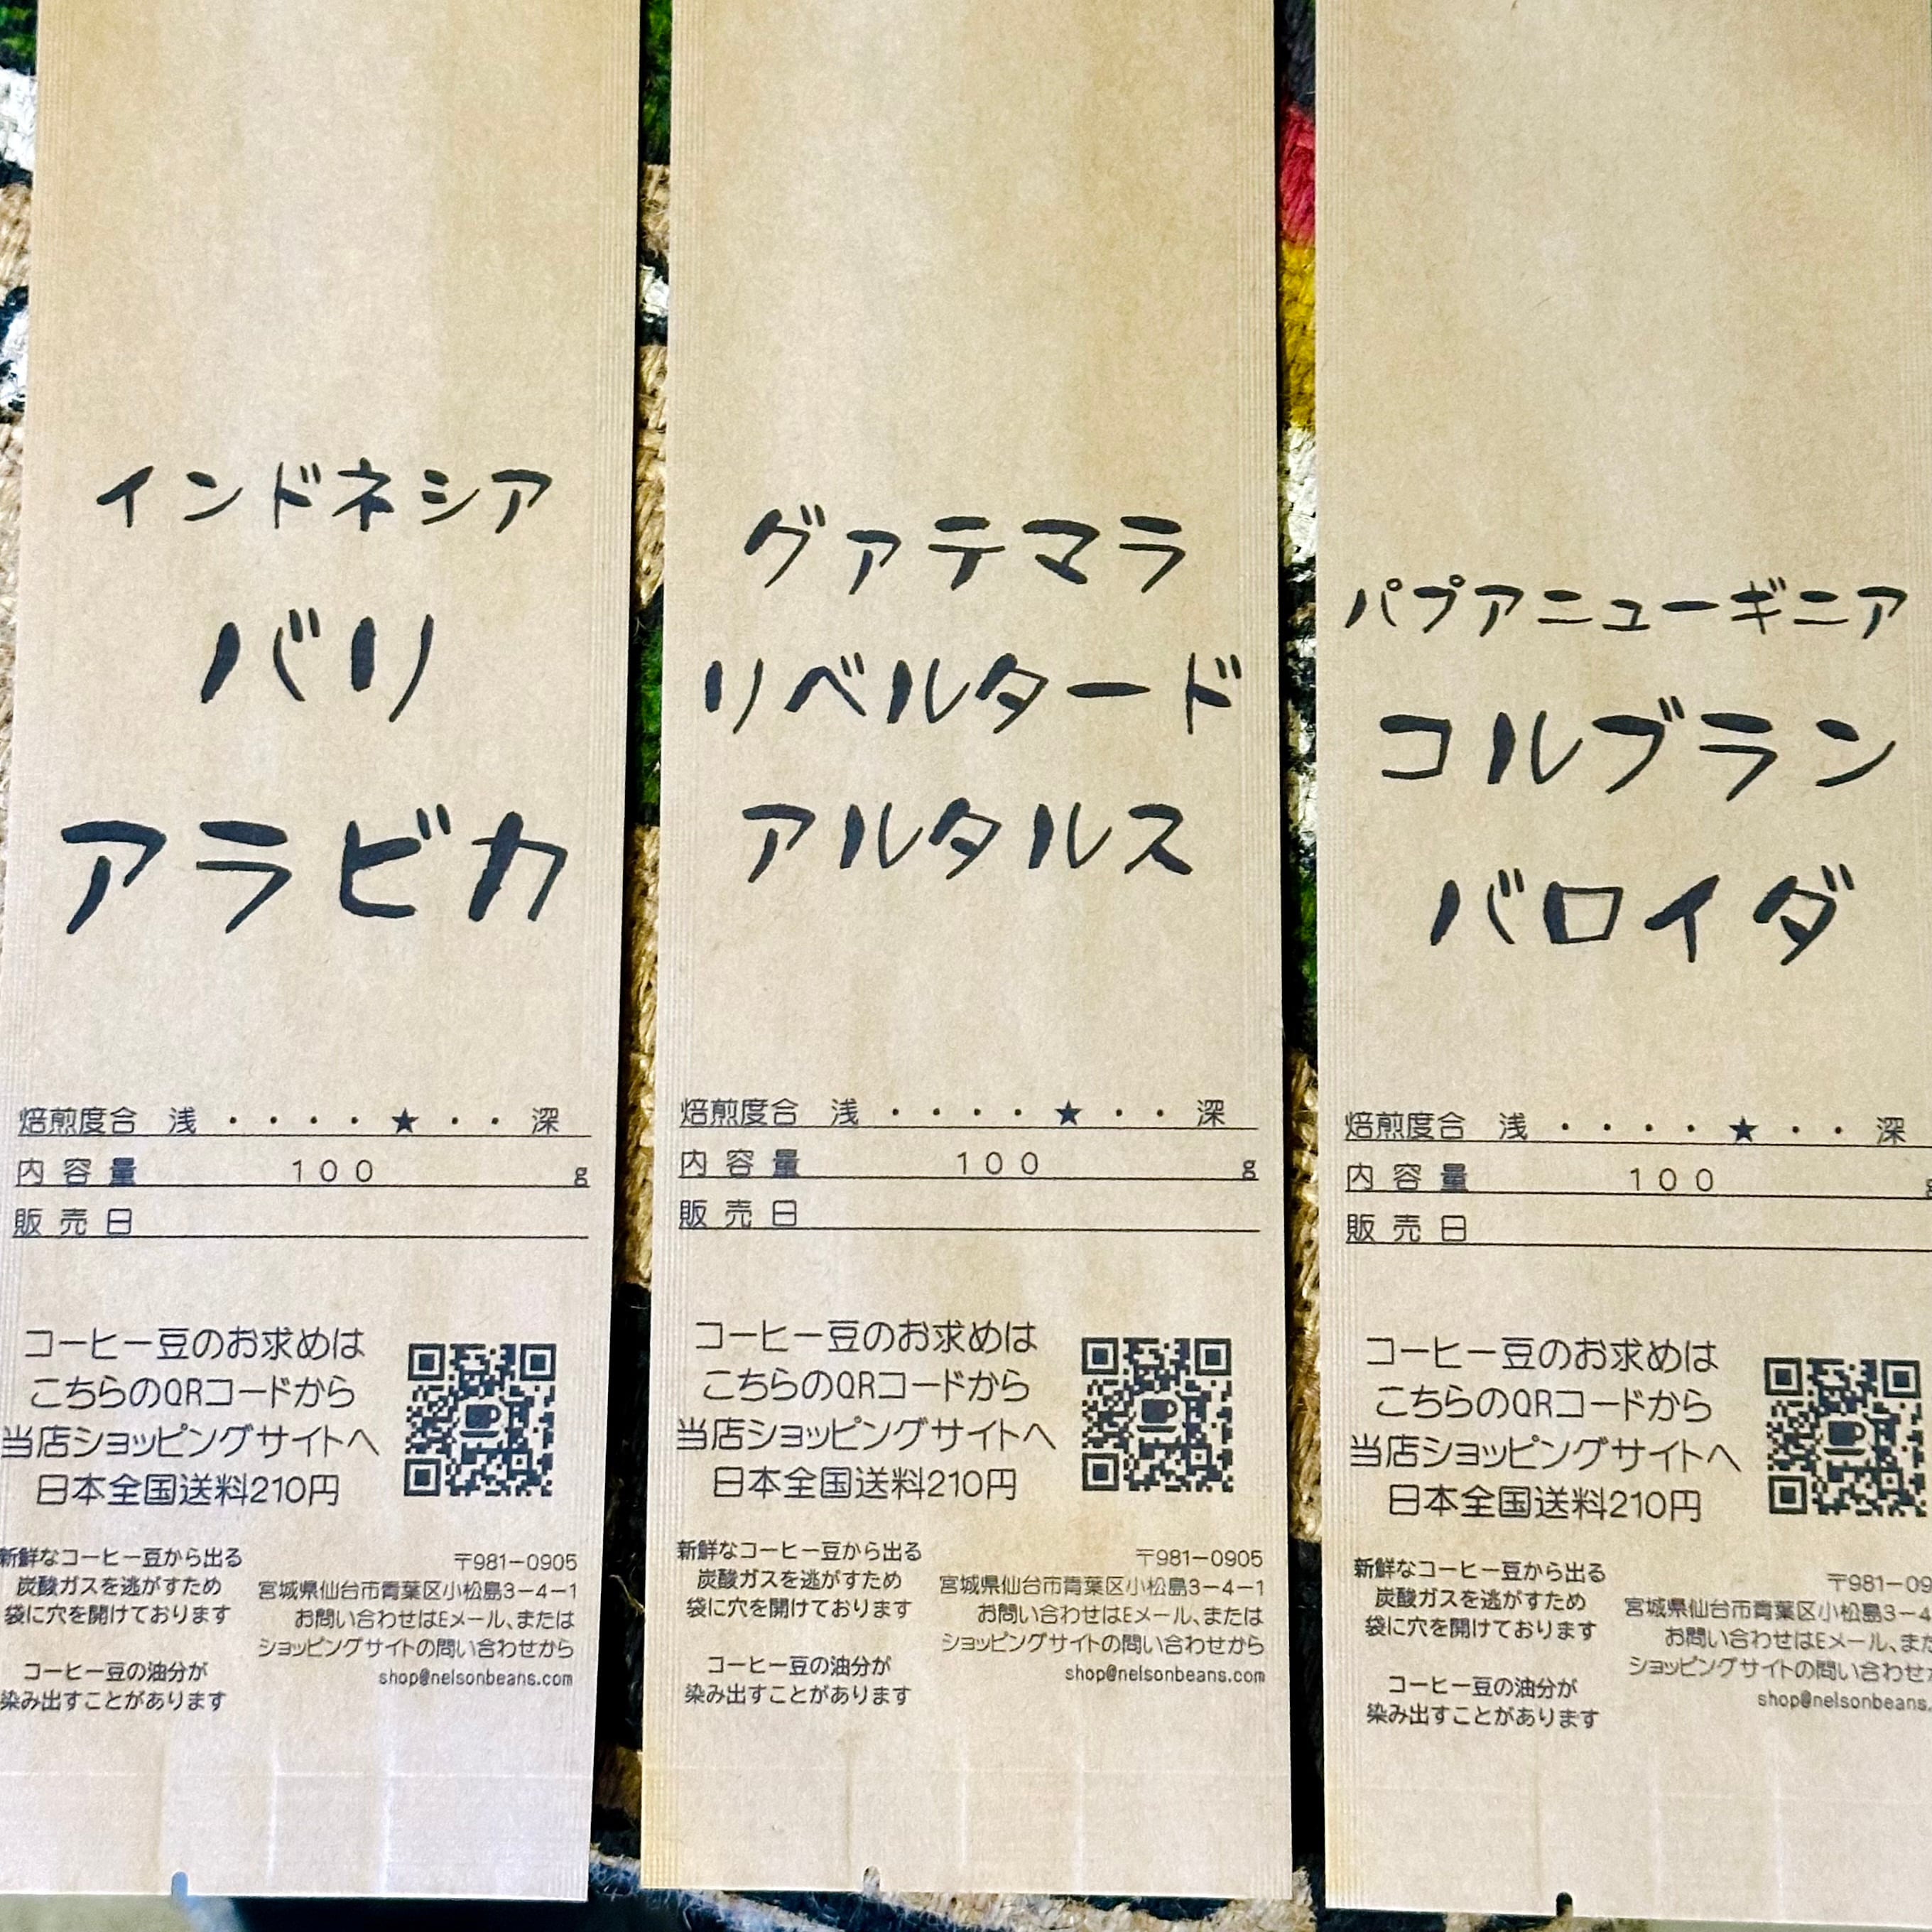 インドネシア
バリ
アラビカ
焙煎度合 浅・・・・★・・深
内容量 100 g
販売日
コーヒー豆のお求めは
こちらのQRコードから
当店ショッピングサイトへ
日本全国送料210円
新鮮なコーヒー豆から出る
炭酸ガスを逃がすため
袋に穴を開けております
コーヒー豆の油分が
染み出すことがあります
〒981-0905
宮城県仙台市青葉区小松島3-4-1
お問い合わせはEメール、または
ショッピングサイトの問い合わせから
shop@nelsonbeans.com
グァテマラ
リベルタード
アルタルス
焙煎度合 浅・・・・★・・深
内容量 100 g
販売日
コーヒー豆のお求めは
こちらのQRコードから
当店ショッピングサイトへ
日本全国送料210円
新鮮なコーヒー豆から出る
炭酸ガスを逃がすため
袋に穴を開けております
コーヒー豆の油分が
染み出すことがあります
〒981-0905
宮城県仙台市青葉区小松島3-4-1
お問い合わせはEメール、または
ショッピングサイトの問い合わせから
shop@nelsonbeans.com
パプアニューギニア
コルブラン
バロイダ
焙煎度合 浅・・・・★・・深
内容量 100 g
販売日
コーヒー豆のお求めは
こちらのQRコードから
当店ショッピングサイトへ
日本全国送料210円
新鮮なコーヒー豆から出る
炭酸ガスを逃がすため
袋に穴を開けております
コーヒー豆の油分が
染み出すことがあります
〒981-09
宮城県仙台市青葉区小松島3-4
お問い合わせはEメール、また
ショッピングサイトの問い合わせ
shop@nelsonbeans.